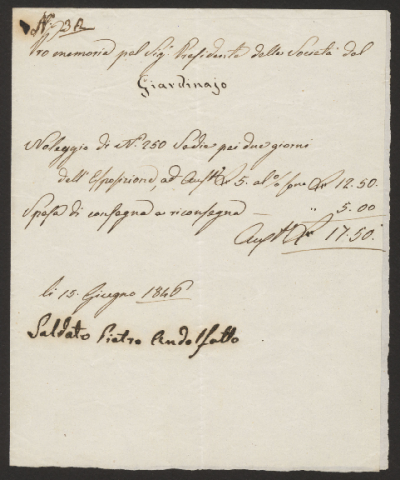 Nº 3 A
Pro memoria pel Sigr Presidente della Società del
Giardinajo
Noleggio di Nº 250 Sedie pei due giorni
dell'Esposizione, ad Austr £ 5. al % sono £ 12.50.
Spesa di consegna e riconsegna — " 5.00
Austr £ 17.50.
li 15. Giugno 1846
Saldato Pietro Andolfatto